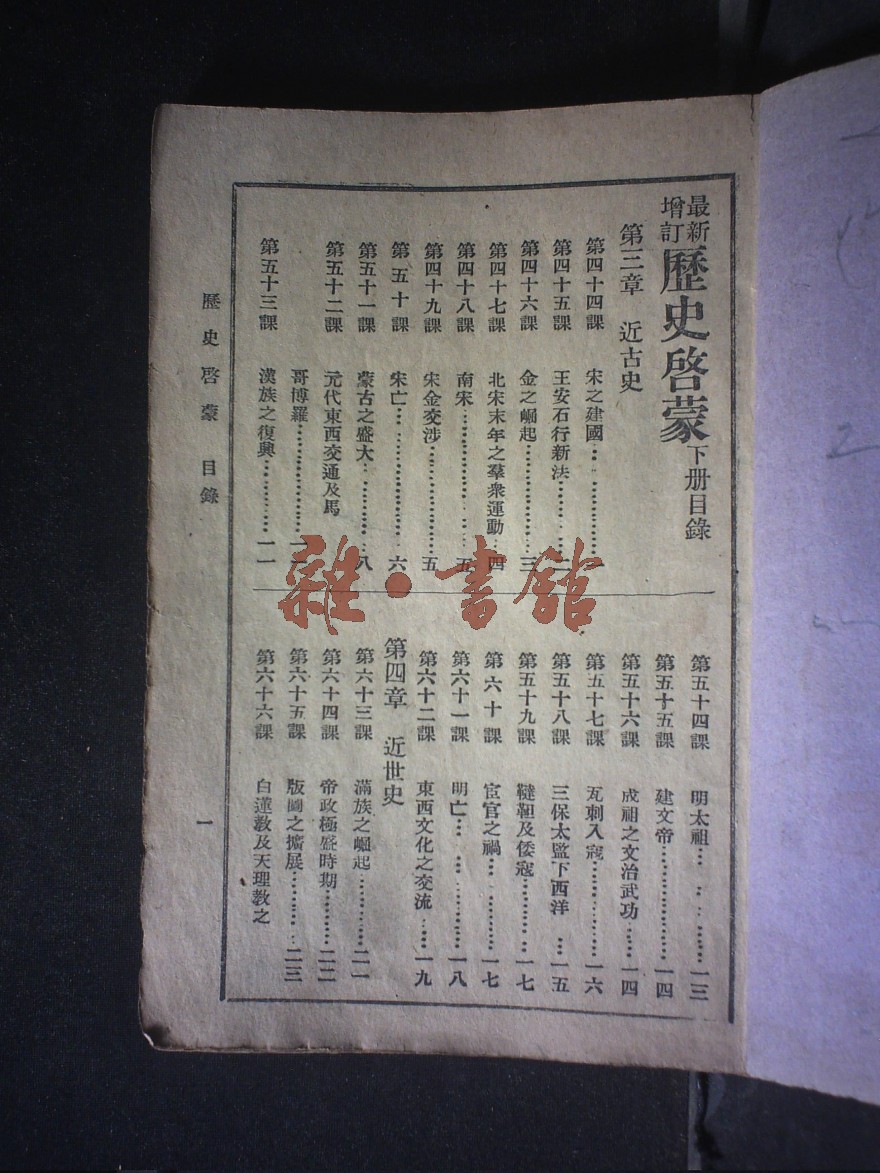 最新增訂歷史啓蒙下册目錄
第三章 近古史
第四十四課 宋之建國……一
第四十五課 王安石行新法……二
第四十六課 金之崛起……三
第四十七課 北宋末年之羣衆運動…四
第四十八課 南宋……五
第四十九課 宋金交涉……五
第五十課 宋亡……六
第五十一課 蒙古之盛大……八
第五十二課 元代東西交通及馬
哥博羅……
第五十三課 漢族之復興……一一
第五十四課 明太祖……一三
第五十五課 建文帝……一四
第五十六課 成祖之文治武功……一四
第五十七課 瓦剌入寇……一六
第五十八課 三保太監下西洋…一五
第五十九課 韃靼及倭寇……一七
第六十課 宦官之禍……一七
第六十一課 明亡……一八
第六十二課 東西文化之交流……一九
第四章 近世史
第六十三課 滿族之崛起……二一
第六十四課 帝政極盛時期……二二
第六十五課 版圖之擴展……二三
第六十六課 白蓮教及天理教之
歷史啓蒙 目錄
一
雜·書館